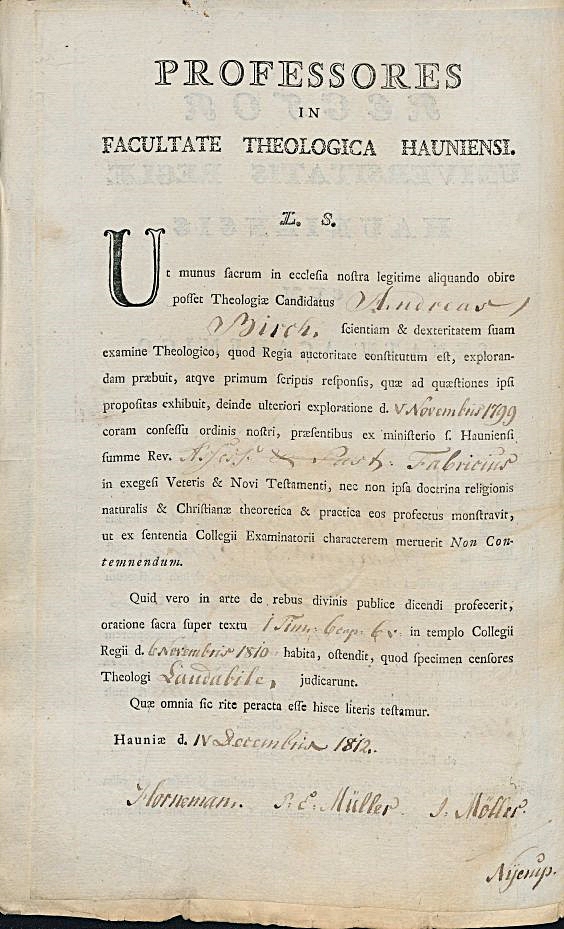 PROFESSORES
IN
FACULTATE THEOLOGICA HAUNIENSI.
L. S.
Ut munus ſacrum in eccleſia noſtra legitime aliquando obire
poſſet Theologiæ Candidatus Andreas
Birch, ſcientiam & dexteritatem ſuam
examine Theologico, quod Regia auctoritate conſtitutum eſt, exploran-
dam præbuit, atqve primum ſcriptis reſponſis, quæ ad quæſtiones ipſi
propoſitas exhibuit, deinde ulteriori exploratione d. V Novembris 1799
coram conſeſſu ordinis noſtri, præſentibus ex miniſterio ſ. Haunienſi
ſumme Rev. Aſſeſſ. & Paſt. Fabricius
in exegeſi Veteris & Novi Teſtamenti, nec non ipſa doctrina religionis
naturalis & Chriſtianæ theoretica & practica eos profectus monſtravit,
ut ex ſententia Collegii Examinatorii characterem meruerit Non Con-
temnendum.
Quid vero in arte de rebus divinis publice dicendi profecerit,
oratione ſacra ſuper textu 1 Tim. 6 cap. 6 v. in templo Collegii
Regii d. 6 Novembris 1810 habita, oſtendit, quod ſpecimen cenſores
Theologi Laudabile, judicarunt.
Quæ omnia ſic rite peracta eſſe hisce literis teſtamur.
Hauniæ d. IV Decembris 1812.
Horneman. P. E. Müller. J. Möller.
Nÿerup.